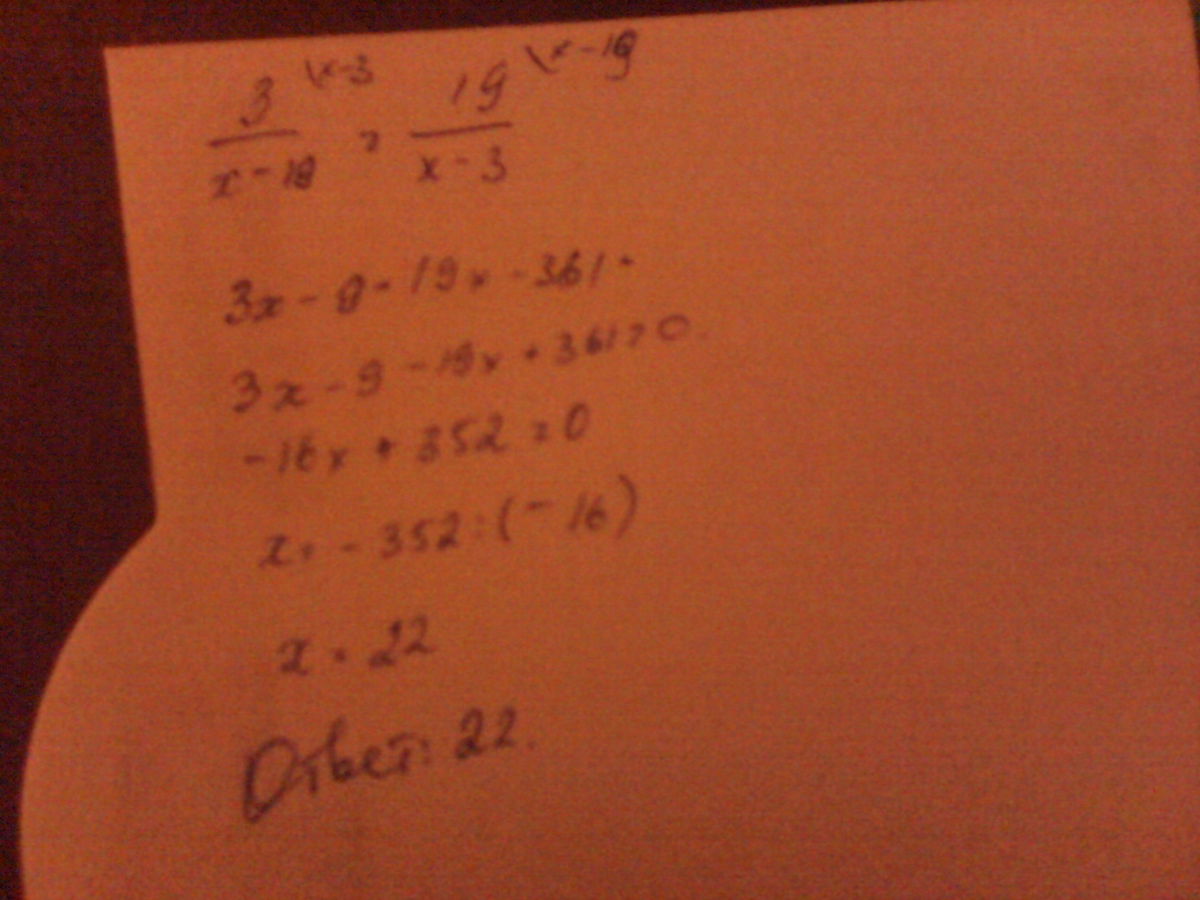 3 \x-3 = 19 \x-19
x-19   x-3
3x - 9 = 19x - 361
3x - 9 - 19x + 361 = 0
-16x + 352 = 0
x = -352 : (-16)
x = 22
Ответ: 22.